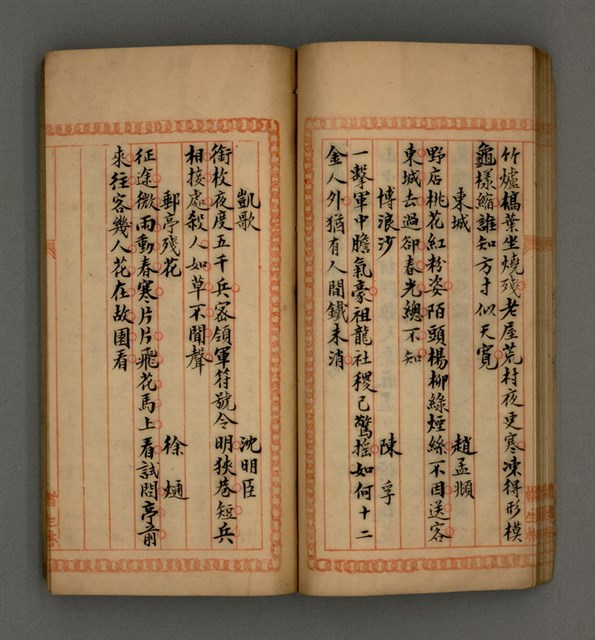 竹爐槁葉坐燒殘老屋荒村夜更寒凍得形模
龜樣縮誰知方寸似天寬
東城 趙孟頫
野店桃花紅粉姿陌頭楊柳綠煙絲不因送客
東城去過卻春光總不知
博浪沙 陳孚
一擊軍中膽氣豪祖龍社稷已驚搖如何十二
金人外猶有人間鐵未消
凱歌 沈明臣
銜枚夜度五千兵密領軍符號令明狹巷短兵
相接處殺人如草不聞聲
郵亭殘花 徐熥
征途微雨動春寒片片飛花馬上看試問亭前
來往客幾人花在故園看